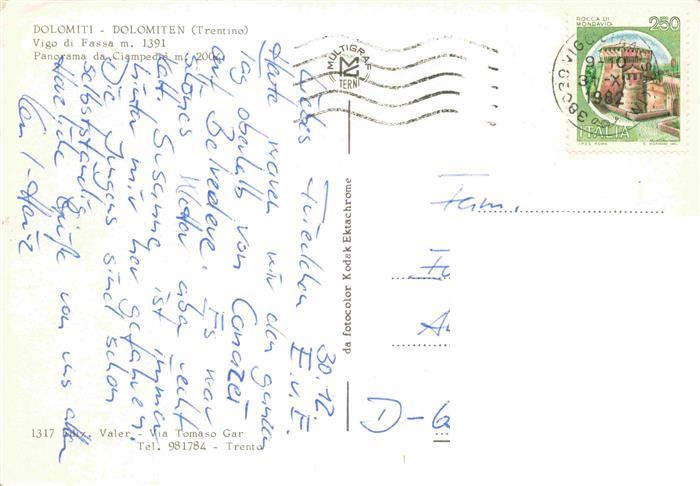 DOLOMITI - DOLOMITEN (Trentino)
Vigo di Fassa m. 1391
Panorama da Ciampedie m. 2004
30.12
Liebes Friedchen E.v.E.
Heute waren wir den ganzen
Tag oberhalb von Canazei
auf Belvedere. Es war
schönes Wetter aber recht
kalt. Susanne ist immer
hinter mir her gefahren.
Die Jungens sind schon
selbstständig
Herzliche Grüße von uns allen
Karl-Heinz
1317 Valer - Via Tomaso Gar
Tel. 981784 - Trento
MULTIGRAF
TERNI
da fotocolor Kodak Ektachrome
ROCCA DI
MONDAVIO
250
ITALIA
I.P.Z.S. ROMA
38039 VIGO
Fam.
D-6